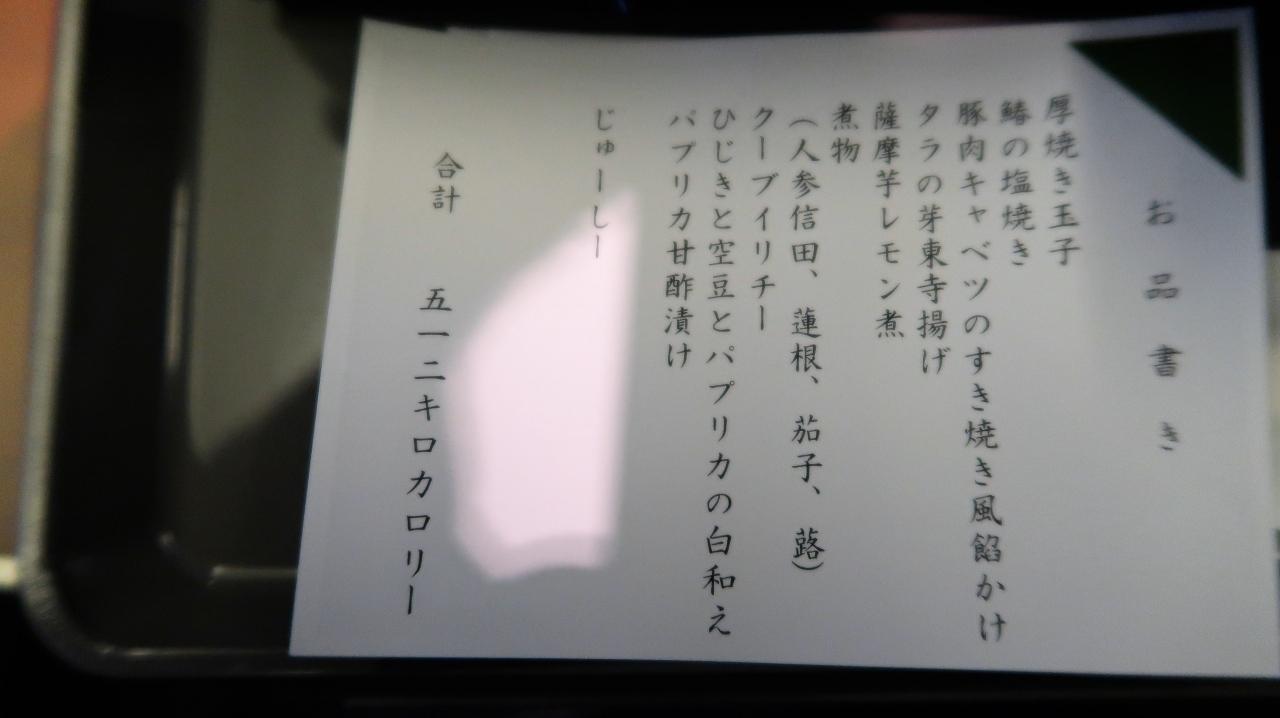 お品書き
厚焼き玉子
鰆の塩焼き
豚肉キャベツのすき焼き風餡かけ
タラの芽東寺揚げ
薩摩芋レモン煮
煮物
（人参信田、蓮根、茄子、蕗）
クーブイリチー
ひじきと空豆とパプリカの白和え
パプリカ甘酢漬け
じゅーしー
合計 五一二キロカロリー